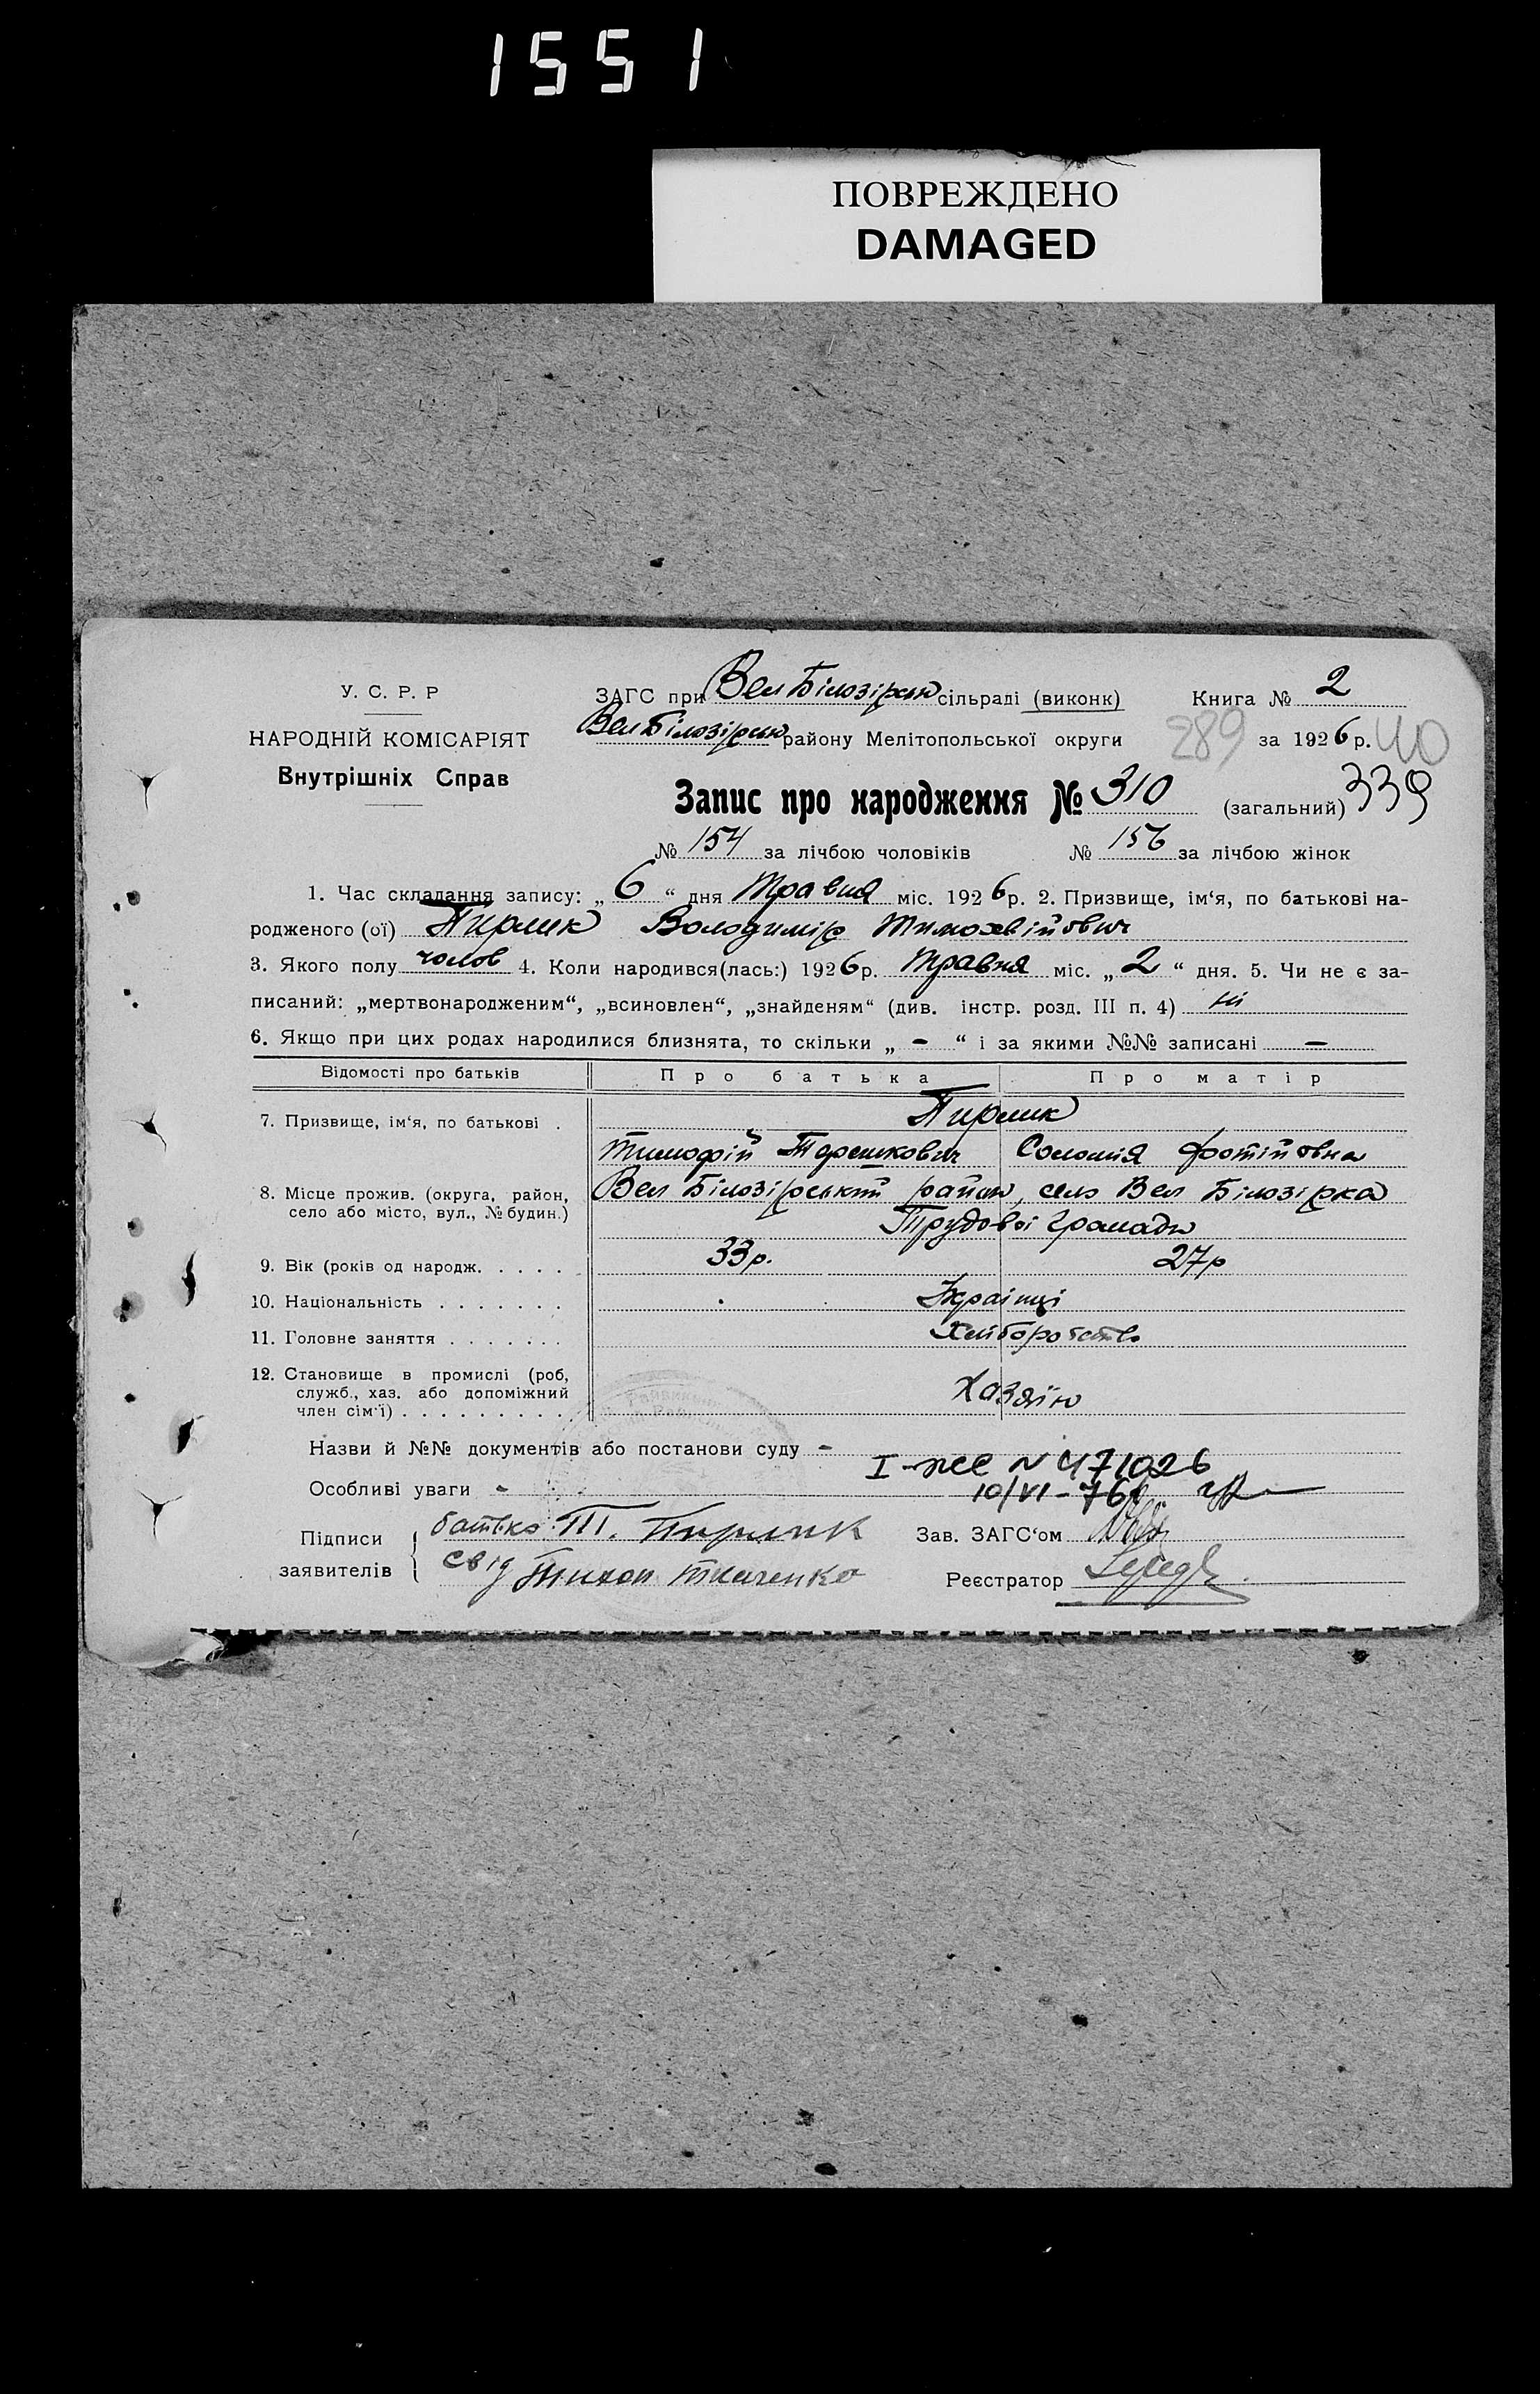 1551
ПОВРЕЖДЕНО
DAMAGED
У. С. Р. Р
НАРОДНІЙ КОМІСАРІЯТ
Внутрішніх Справ
ЗАГС при Вел Білозірськ сільраді (виконк) Книга № 2
Вел Білозірськ району Мелітопольської округи 289 за 1926 р. 40
Запис про народження № 310 (загальний) 339
№ 154 за лічбою чоловіків № 156 за лічбою жінок
1. Час складання запису: „ 6 “ дня Травня міс. 1926 р. 2. Призвище, ім‘я, по батькові на-
родженого (ої) Пирлик Володимір Тимохвійович
3. Якого полу чолов 4. Коли народився(лась:) 1926 р. Травня міс. „ 2 “ дня. 5. Чи не є за-
писаний: „мертвонародженим“, „всиновлен“, „знайденям“ (див. інстр. розд. III п. 4) ні
6. Якщо при цих родах народилися близнята, то скільки „ - “ і за якими №№ записані -
Відомості про батьків Про батька Про матір
7. Призвище, ім‘я, по батькові . Пирлик
Тимофій Терешкович Соломія Фотійовна
8. Місце прожив. (округа, район,
село або місто, вул., № будин.)
Вел Білозірський район, село Вел Білозірка
Трудової Громади
9. Вік (років од народж. . . . . 33 р. 27 р
10. Національність . . . . . . . Українці
11. Головне заняття . . . . . . . Хліборобство
12. Становище в промислі (роб,
служб., хаз. або допоміжний
член сім‘ї) . . . . . . . . . . Хазяїн
Назви й №№ документів або постанови суду -
I-ЖС N 471026
Особливі уваги - 10/VI-76
Підписи батько Т. Пирлик Зав. ЗАГС‘ом
заявителів свід Тихон Ткаченко
Реєстратор